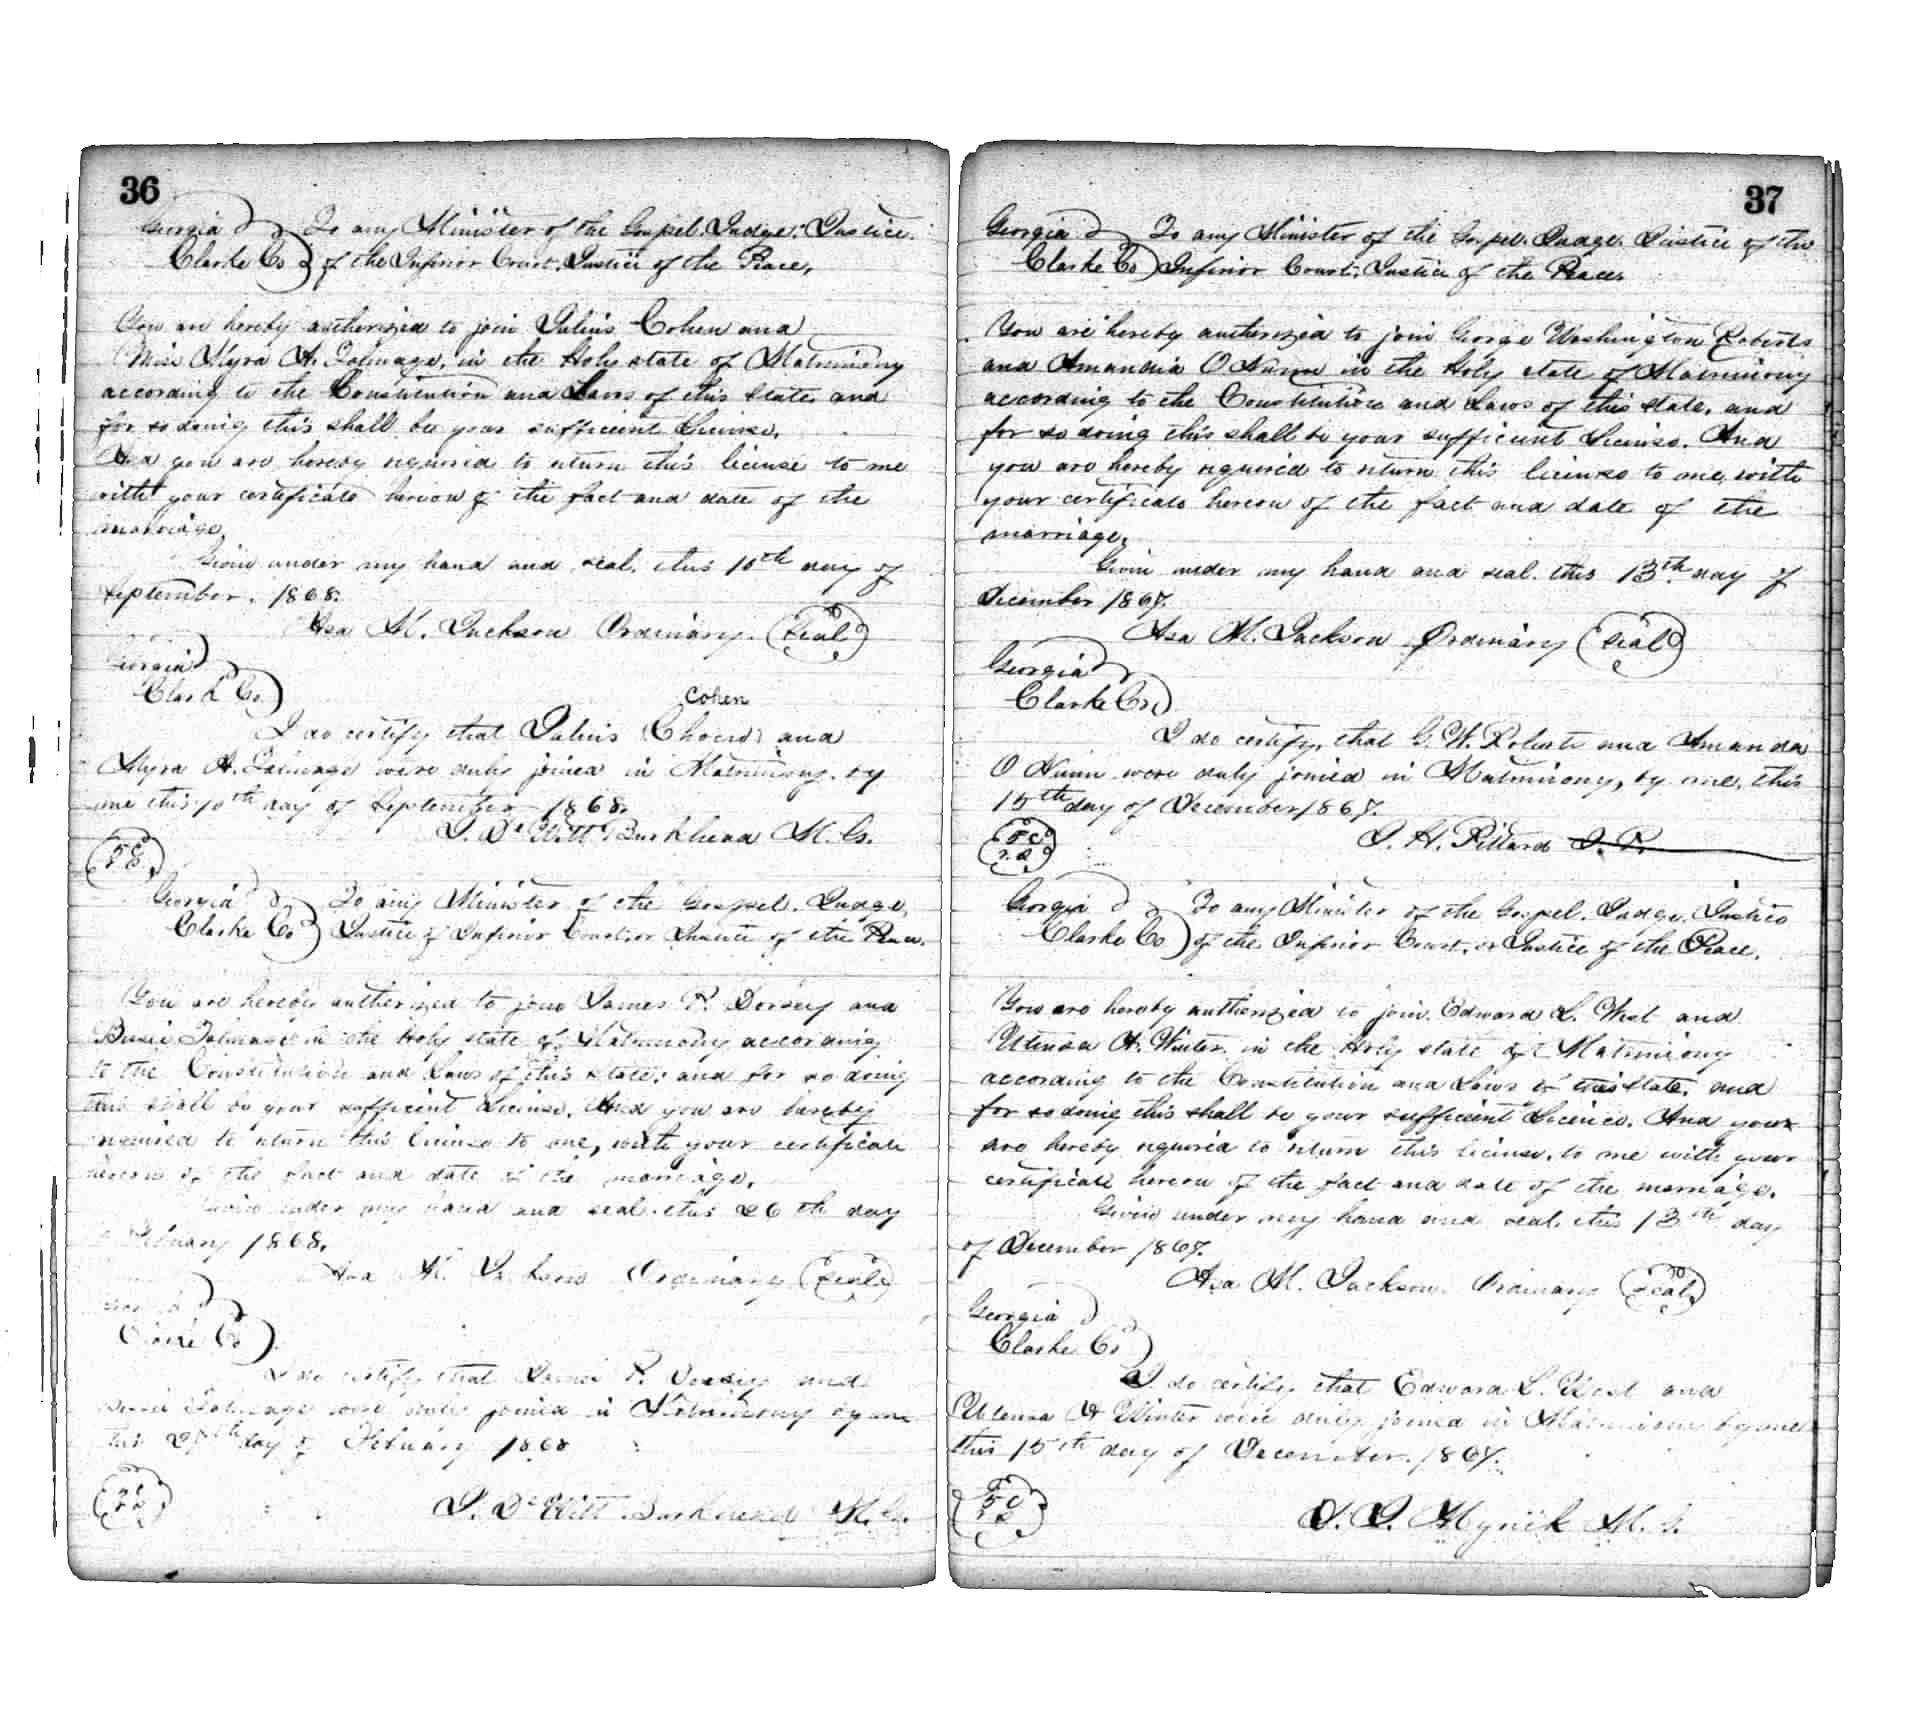 36
Georgia To any Minister of the Gospel, Judge, Justice
Clarke Co of the Inferior Court, Justice of the Peace,
You are hereby authorized to join Julius Cohen and
Miss Myra A. Talmage, in the Holy state of Matrimony
according to the Constitution and Laws of this State and
for so doing this shall be your sufficient License.
And you are hereby required to return this license to me
with your certificate hereon of the fact and date of the
marriage
Given under my hand and seal, this 10th day of
September, 1868.
Asa M. Jackson Ordinary. (Seal)
Georgia
Clark Co
Cohen
I do certify that Julius and
Myra A. Talmage were duly joined in Matrimony by
me this 10th day of September 1868.
J. De Witt Burkhead M. G.
Georgia To any Minister of the Gospel, Judge,
Clarke Co Justice of Inferior Court, or Justice of the Peace.
You are hereby authorized to join James P. Dorsey and
Talmage in the Holy state of Matrimony according
to the Constitution and Laws of this State, and for so doing
this shall be your sufficient License. And you are hereby
required to return this license to me, with your certificate
hereon of the fact and date of the marriage.
Given under my hand and seal this 26th day
of February 1868.
Asa M. Jackson Ordinary (Seal)
Georgia
Clarke Co
I do certify that James P. Dorsey and
Talmage were duly joined in Matrimony by me
this 27th day of February 1868
J. De Witt Burkhead M. G.
37
Georgia To any Minister of the Gospel, Judge, Justice of the
Clarke Co Inferior Court, Justice of the Peace.
You are hereby authorized to join George Washington Roberts
and Amandia O Nunn in the Holy state of Matrimony
according to the Constitution and Laws of this State, and
for so doing this shall be your sufficient License. And
you are hereby required to return this license to me, with
your certificate hereon of the fact and date of the
marriage.
Given under my hand and seal this 13th day of
December 1867.
Asa M. Jackson Ordinary (Seal)
Georgia
Clarke Co
I do certify, that G. W. Roberts and Amanda
O Nunn were duly joined in Matrimony, by me, this
15th day of December 1867.
J. H. Pittard J. P.
Georgia To any Minister of the Gospel, Judge, Justice
Clarke Co of the Inferior Court, or Justice of the Peace.
You are hereby authorized to join Edward L. West and
A. Winter in the Holy state of Matrimony
according to the Constitution and Laws of this State, and
for so doing this shall be your sufficient License. And you
are hereby required to return this license, to me with your
certificate hereon of the fact and date of the marriage.
Given under my hand and seal, this 13th day
of December 1867.
Asa M. Jackson Ordinary (Seal)
Georgia
Clarke Co
I do certify that Edward L. West and
A Winter were duly joined in Matrimony by me
this 15th day of December, 1867.
Myrick M. G.